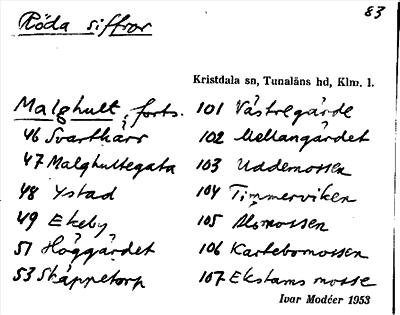 Röda siffror
83
Kristdala sn, Tunaläns hd, Klm. l.
Malghult, forts.
46 Svartkärr
47 Malghultegata
48 Ystad
49 Ekeby
51 Höggärdet
53 Skäppetorp
101 Västregärde
102 Mellangärdet
103 Uddemossen
104 Timmerviken
105 Alsmossen
106 Karlebomossen
107 Ekstams mosse
Ivar Modéer 1953